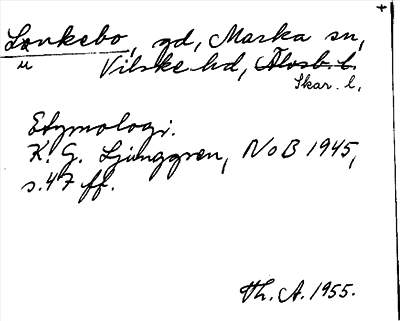 +
Lonkebo, gd, Marka sn,
u Vilske hd, Älvsb. l.
Skar. l.
Etymologi.
K. G. Ljunggren, NoB 1945,
s. 47 ff.
Th. A. 1955.